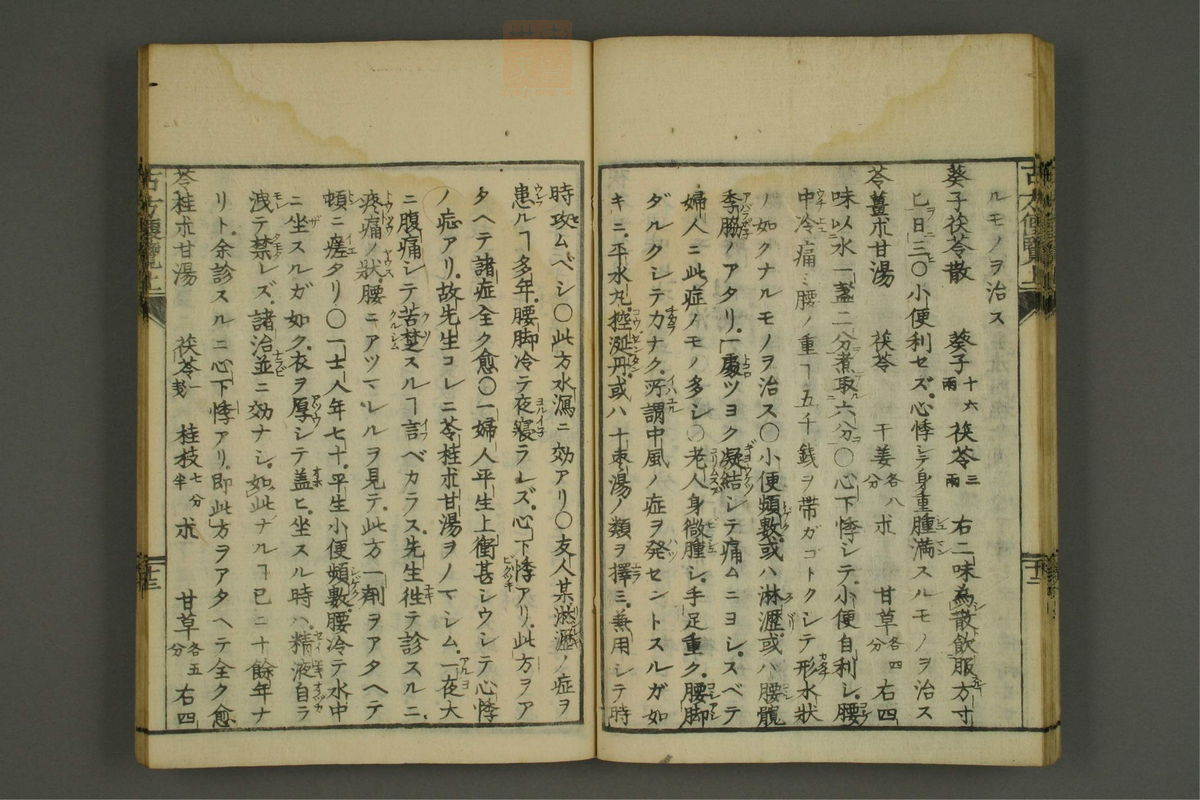 ルモノヲ治ス
葵子茯苓散　葵子十六両　茯苓三両　右二味為散飲服方寸
匕日三〇小便利セズ心悸シテ身重腫満スルモノヲ治ス
苓薑朮甘湯　茯苓　干姜各八分　朮　甘草各四分　右四
味以水一盞二分煮取六分〇心下悸シテ小便自利シ腰
中冷痛ミ腰ノ重ヿ五千銭ヲ帯ガゴトクシテ形水状
ノ如クナルモノヲ治ス〇小便頻數或ハ淋瀝或ハ腰髖
季脇ノアタリ一處ツヨク凝結シテ痛ムニヨシスベテ
婦人ニ此症ノモノ多シ〇老人身微腫シ手足重ク腰脚
ダルクシテカナク所謂中風ノ症ヲ発セントスルガ如
キニ平水丸控涎丹或ハ十棗湯ノ類ヲ擇ミ兼用シテ時
時攻ムベシ〇此方水瀉ニ効アリ〇友人某淋瀝ノ症ヲ
患ルヿ多年腰脚冷テ夜寝ラレズ心下悸アリ此方ヲア
タヘテ諸症全ク愈〇一婦人平生上衝甚シウシテ心悸
ノ症アリ故先生コレニ苓桂朮甘湯ヲノマシム一夜大
ニ腹痛シテ苦楚スルヿ言ベカラス先生徃テ診スルニ
疼痛ノ状腰ニアツマルヲ見テ此方一劑ヲアタヘテ
頓ニ瘥タリ〇一士人年七十平生小便頻數腰冷テ水中
ニ坐スルガ如ク衣ヲ厚シテ蓋ヒ坐スル時ハ精液自ラ
洩テ禁レズ諸治並ニ効ナシ如此ナルヿ已ニ十餘年ナ
リト余診スルニ心下悸アリ即此方ヲアタヘテ全ク愈
苓桂朮甘湯　茯苓一戔　桂枝七分半　朮　甘草各五分　右四
古方便覽上
十三